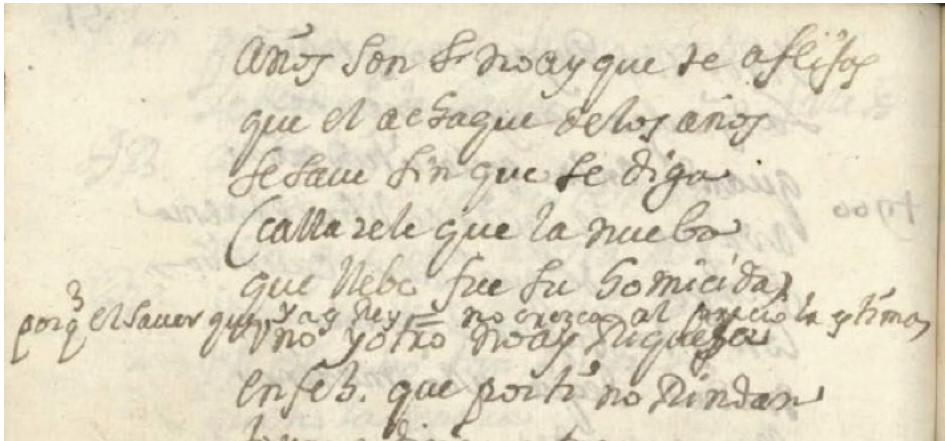 años son sr no ay que te aflijas
que el achaque de los años
se save sin que se diga
(callarele que la nueba
que llebo fue su homicida)
porq̃ el saver que ya ay Rey = no crezca al precio la
Uno y otro no ay riqueza
en feb. que por ti no Rindan